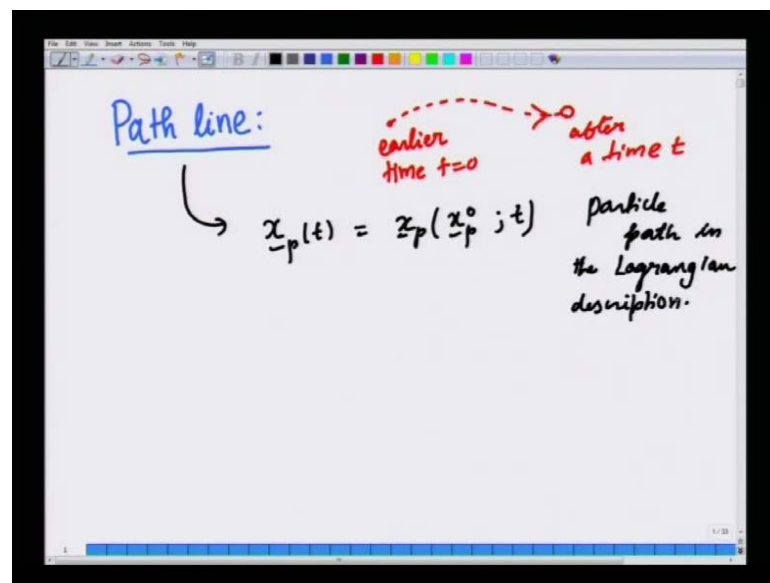 File Edit View Insert Actions Tools Help
Path line:
earlier
time t=0
after
a time t
x̲p(t) = x̲p(x̲p⁰ ; t)
particle
path in
the Lagrangian
description.
1/33
1